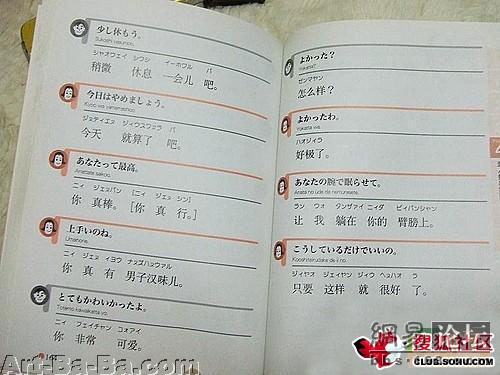 少し休もう。
Sukoshi yasumoo.
シャオウェイ シウシ イーホウル バ
稍微 休息 一会儿 吧。
今日はやめましょう。
Kyoo wa yamemashoo.
ジュティエヌ ジィウスワァラ バ
今天 就算了 吧。
あなたって最高。
Anatatte saikoo.
ニィ ジェヌバン [ニィ ジェヌ シン]
你 真棒。[你 真 行。]
上手いのね。
Umainone.
ニィ ジェヌ イヨウ ナヌズハァウァル
你 真 有 男子汉味儿。
とてもかわいかったよ。
Totemo kawaikatta yo.
ニィ フェイチャン コォアイ
你 非常 可爱。
よかった?
Yokatta?
ゼンマヤン
怎么样?
よかったわ。
Yokatta wa.
ハオジィラ
好极了。
あなたの腕で眠らせて。
Anata no ude de nemurasete.
ラン ウォ タンザァイ ニィダ ビィバンシャン
让 我 躺在 你的 臂膀上。
こうしているだけでいいの。
Kooshiteirudake de ii no.
ジィヤオ ジェイヤン ジィウ ヘェハオ ラ
只要 这样 就 很好 了。
网易论坛
搜狐社区
CLUB.SOHU.COM
Art-Ba-Ba.com